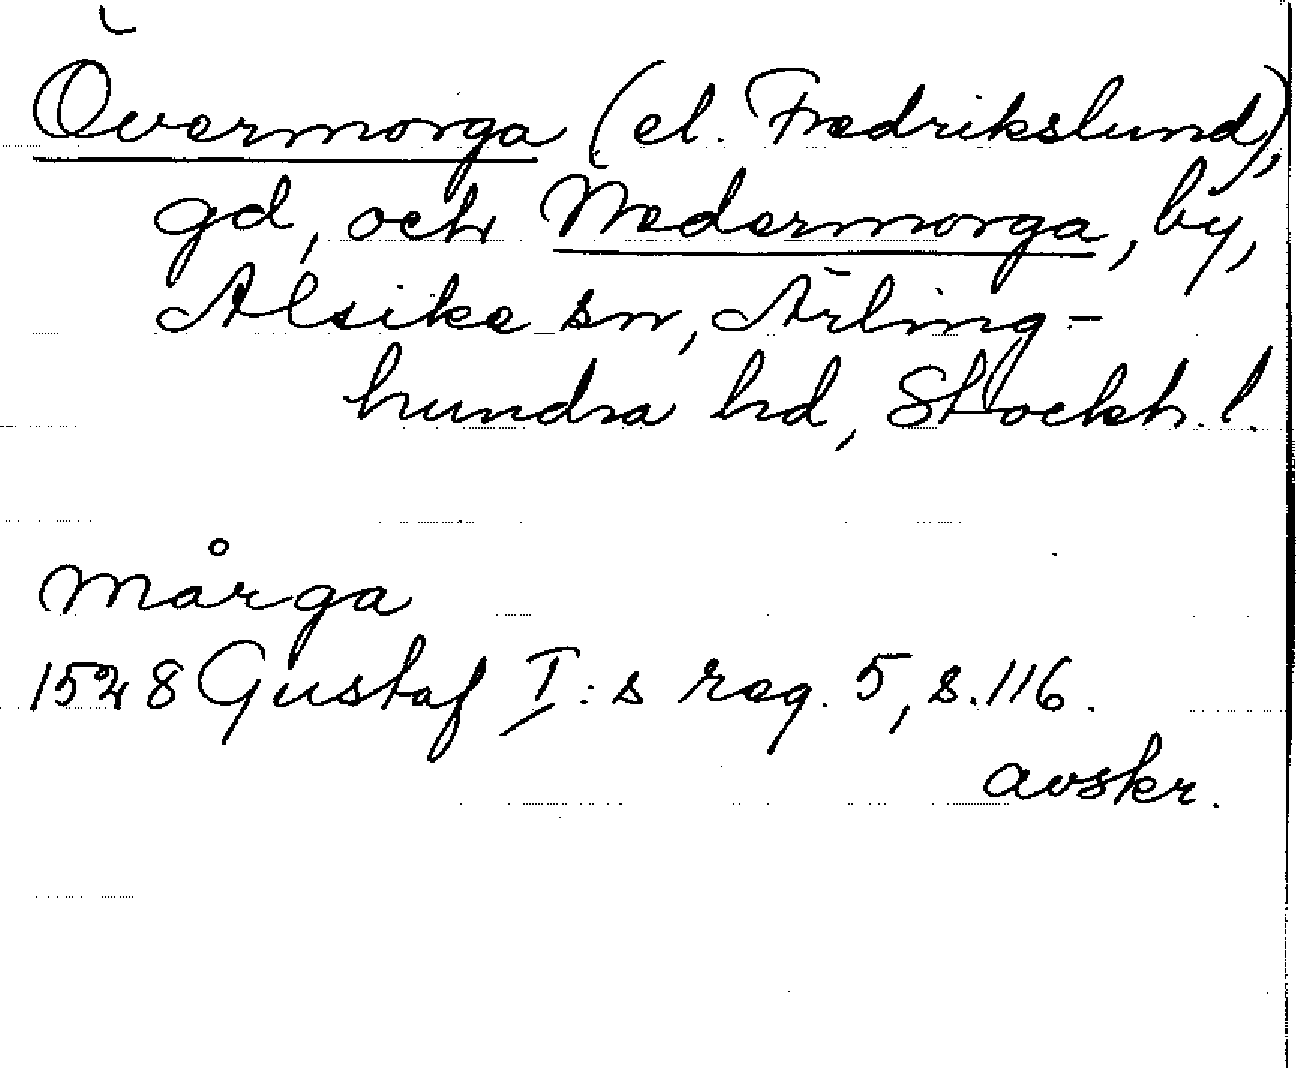 Övermorga (el. Fredrikslund),
gd, och Nedermorga, by,
Alsike sn, Ärling-
hundra hd, Stockh. l.
Mårga
1528 Gustaf I:s reg. 5, s. 116.
avskr.